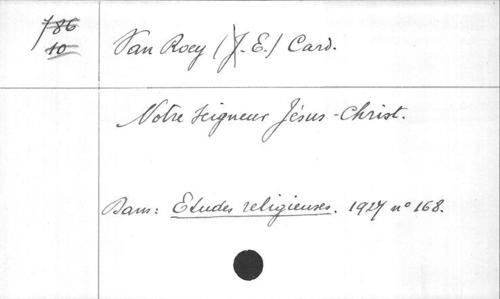 786
10
Van Roey (J.-E.) Card.
Notre Seigneur Jésus-Christ.
Dans: Etudes religieuses. 1927 n° 168.